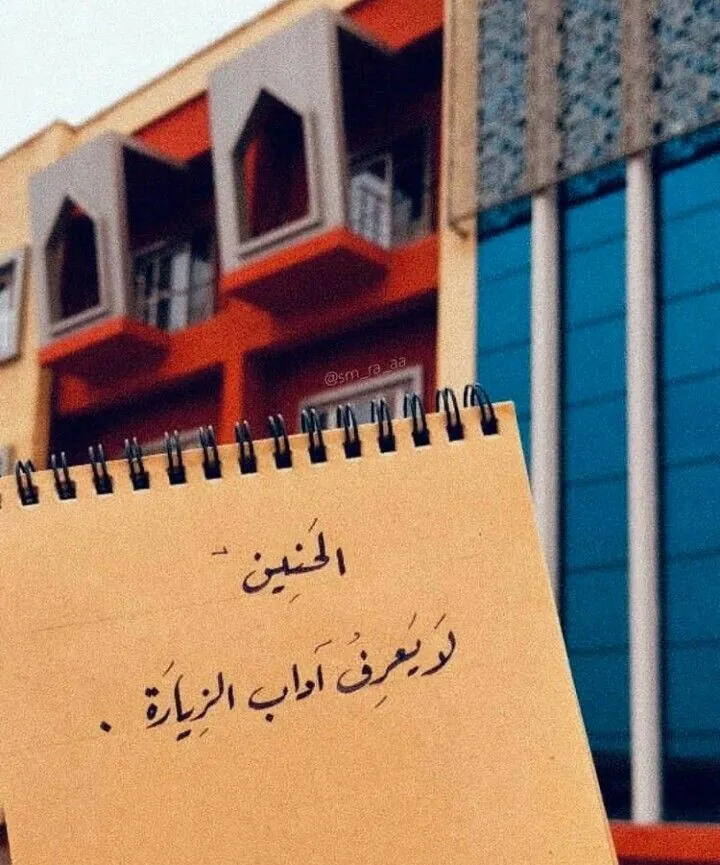 @sm_ra_aa
الحَنِين
لَا يَعرِفُ آدَاب الزِيَارَة .